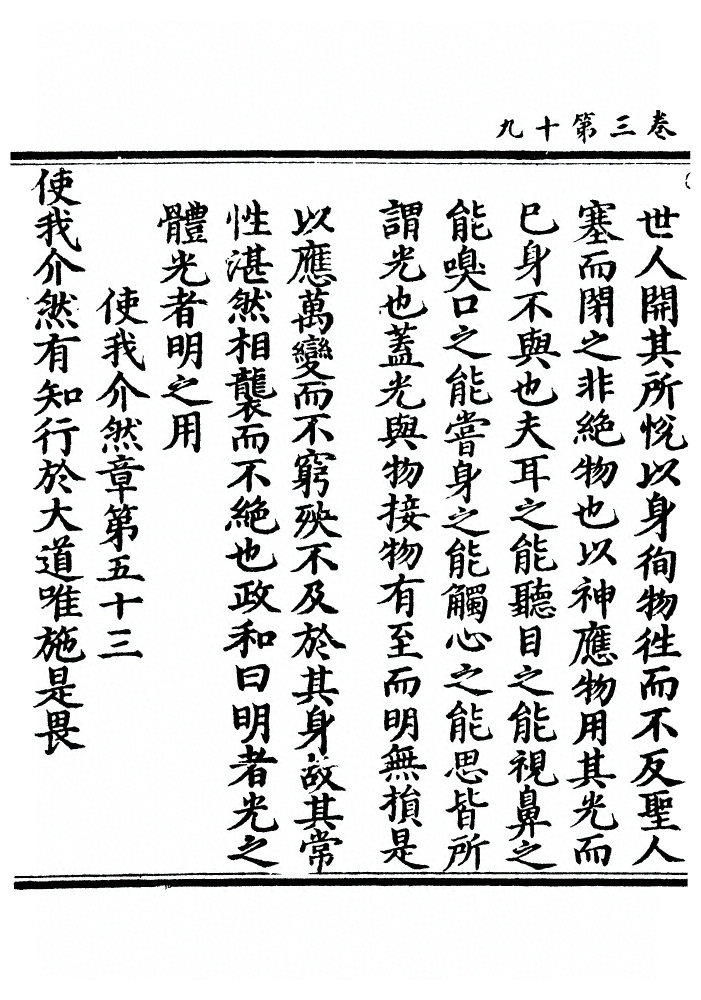 卷三第十九
世人開其所悅以身徇物徃而不反聖人
塞而閉之非絶物也以神應物用其光而
已身不與也夫耳之能聽目之能視鼻之
能嗅口之能嘗身之能觸心之能思皆所
謂光也蓋光與物接物有至而明無損是
以應萬變而不窮殃不及於其身故其常
性湛然相襲而不絶也政和曰明者光之
體光者明之用
使我介然章第五十三
使我介然有知行於大道唯施是畏